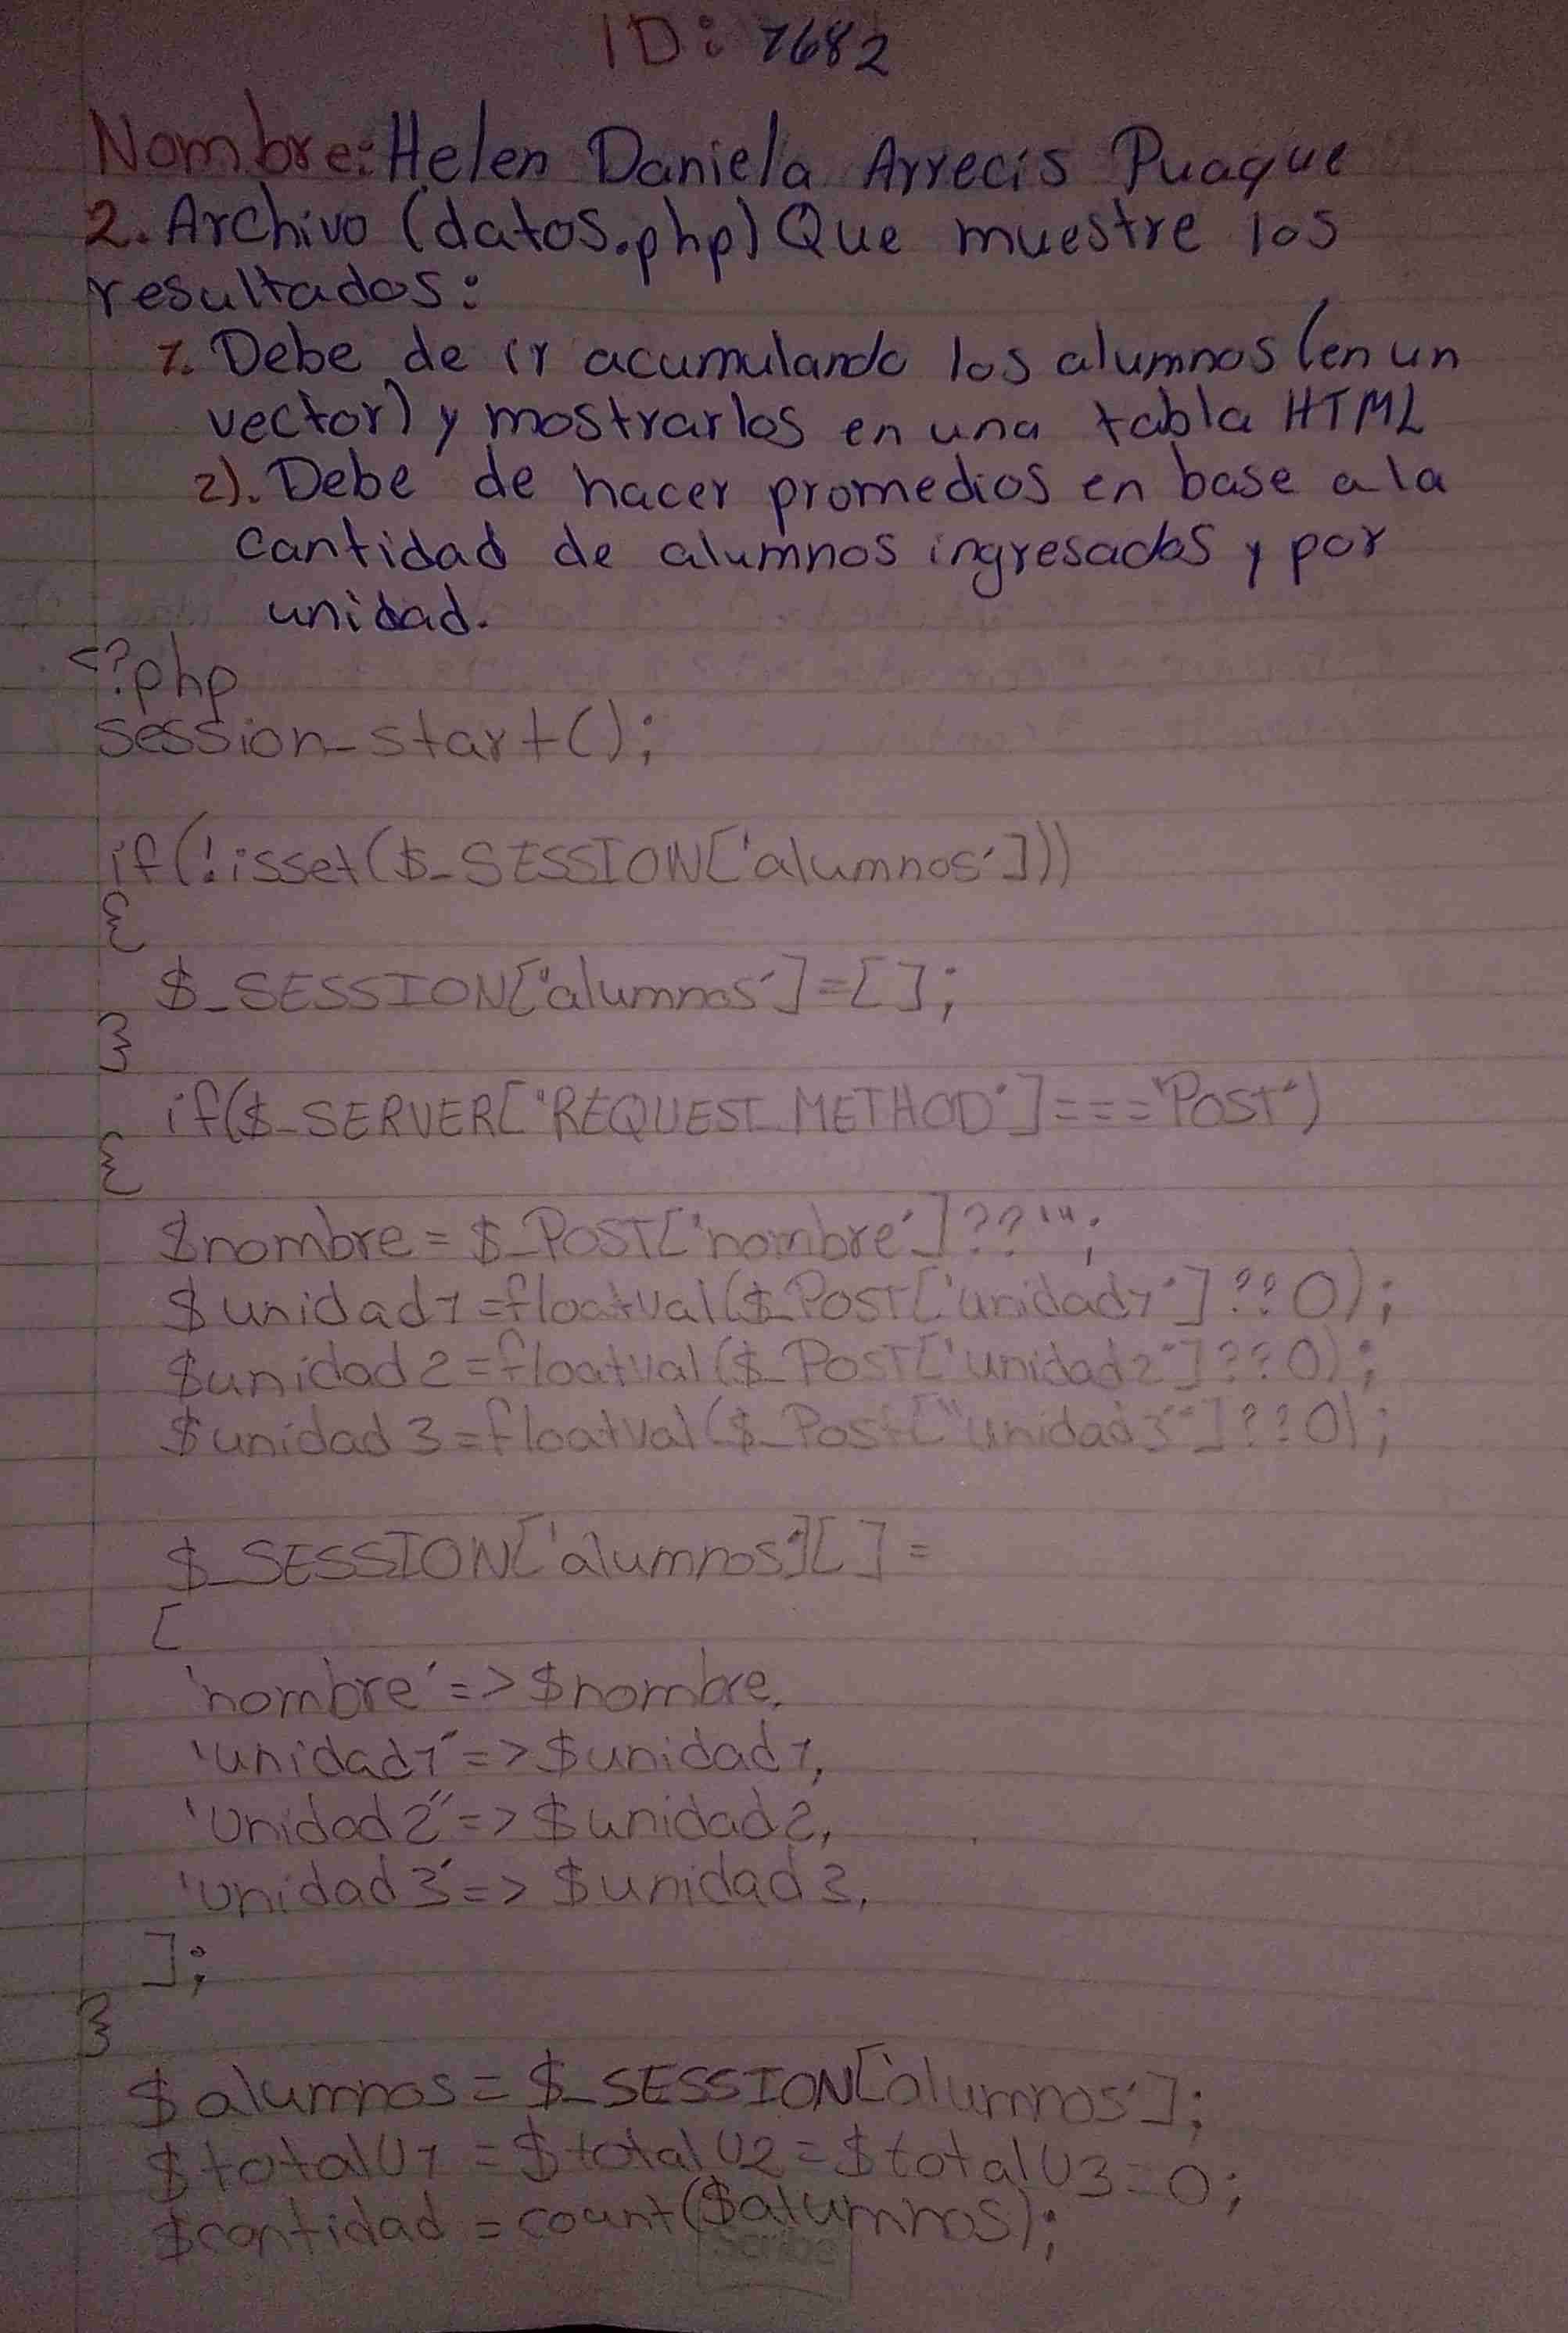 ID: 7682
Nombre: Helen Daniela Arrecis Puaque
2. Archivo (datos.php) Que muestre los
resultados:
1. Debe de ir acumulando los alumnos (en un
vector) y mostrarlos en una tabla HTML
2). Debe de hacer promedios en base a la
cantidad de alumnos ingresados y por
unidad.
<?php
session_start();
if(!isset($_SESSION['alumnos']))
{
$_SESSION['alumnos']=[];
}
if($_SERVER['REQUEST_METHOD']==='POST')
{
$nombre=$_POST['nombre']??'';
$unidad1=floatval($_POST['unidad1']??0);
$unidad2=floatval($_POST['unidad2']??0);
$unidad3=floatval($_Post['unidad3']??0);
$_SESSION['alumnos'][]=
[
'nombre'=>$nombre,
'unidad1'=>$unidad1,
'Unidad2'=>$unidad2,
'Unidad3'=>$unidad3,
];
}
$alumnos=$_SESSION['alumnos'];
$totalU1=$totalU2=$totalU3=0;
$cantidad=count($alumnos);
Scribe